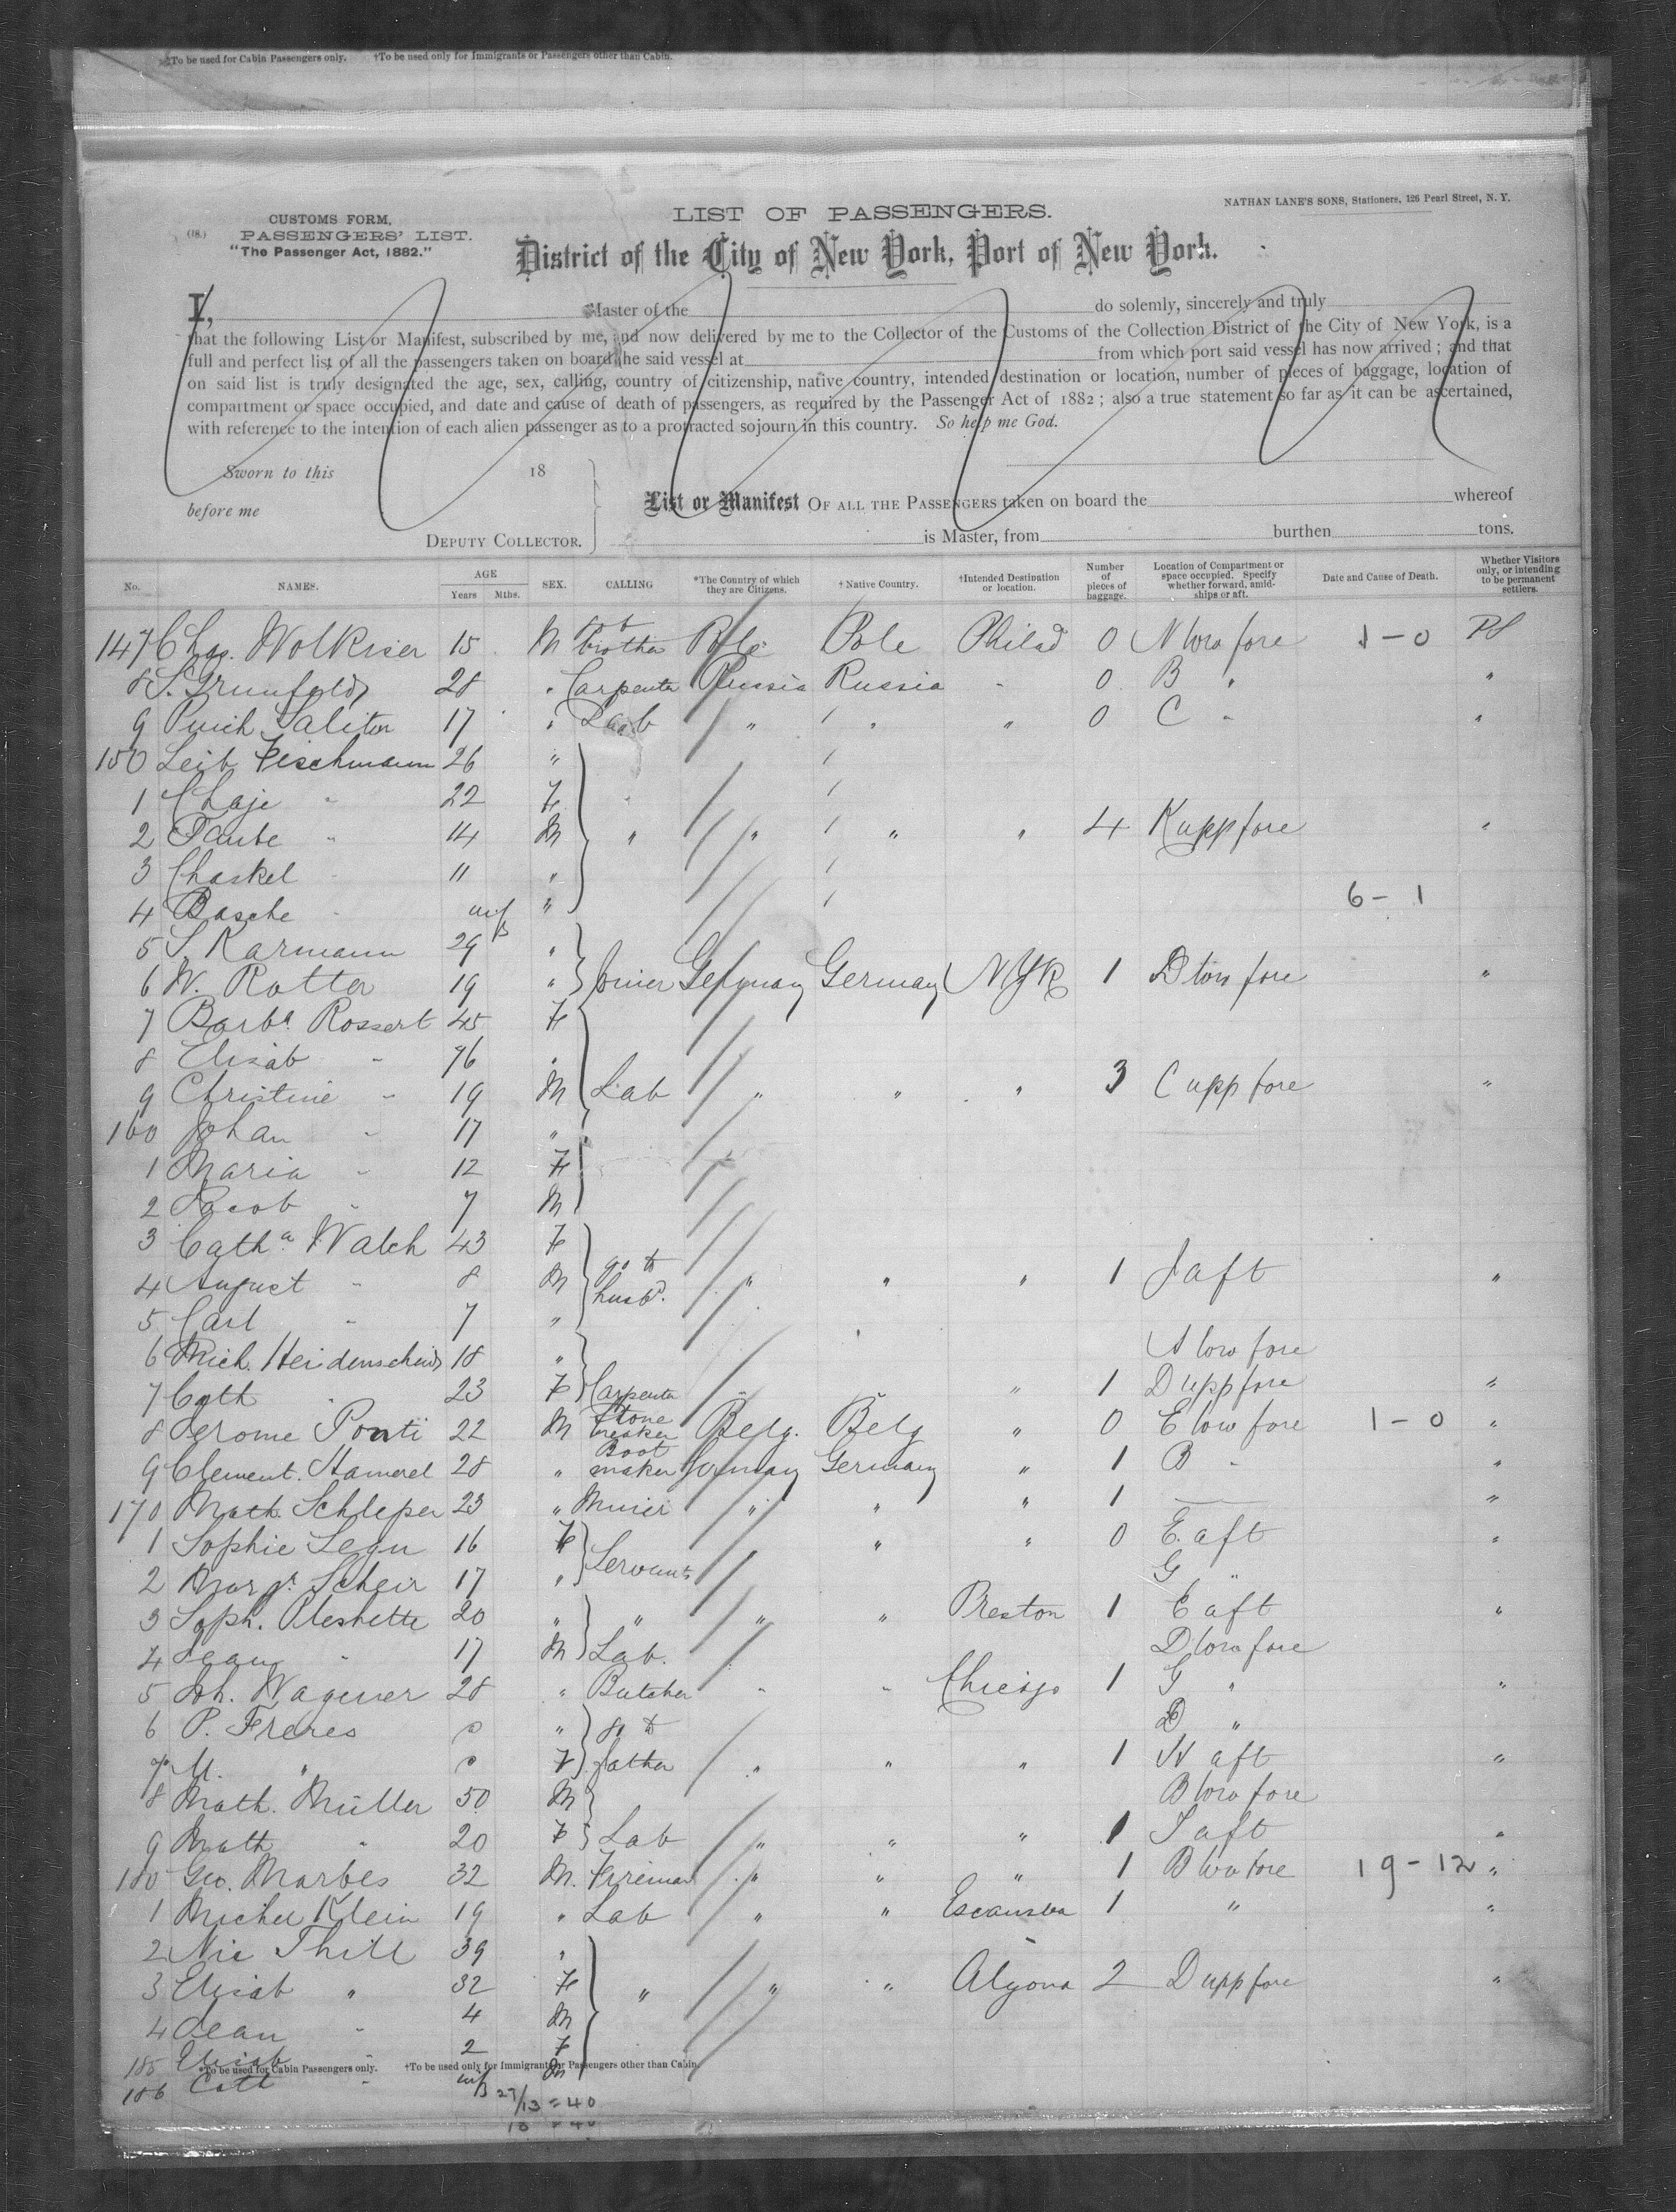 *To be used for Cabin Passengers only. †To be used only for Immigrants or Passengers other than Cabin.
NATHAN LANE'S SONS, Stationers, 126 Pearl Street, N. Y.
CUSTOMS FORM,
(18.) PASSENGERS' LIST.
"The Passenger Act, 1882."
LIST OF PASSENGERS.
District of the City of New York, Port of New York.
I, Master of the do solemnly, sincerely and truly
that the following List or Manifest, subscribed by me, and now delivered by me to the Collector of the Customs of the Collection District of the City of New York, is a
full and perfect list of all the passengers taken on board the said vessel at from which port said vessel has now arrived ; and that
on said list is truly designated the age, sex, calling, country of citizenship, native country, intended destination or location, number of pieces of baggage, location of
compartment or space occupied, and date and cause of death of passengers, as required by the Passenger Act of 1882 ; also a true statement so far as it can be ascertained,
with reference to the intention of each alien passenger as to a protracted sojourn in this country. So help me God.
Sworn to this 18
before me
DEPUTY COLLECTOR.
List or Manifest OF ALL THE PASSENGERS taken on board the whereof
is Master, from burthen tons.
No. NAMES. AGE Years Mths. SEX. CALLING *The Country of which they are Citizens. † Native Country. †Intended Destination or location. Number of pieces of baggage. Location of Compartment or space occupied. Specify whether forward, amidships or aft. Date and Cause of Death. Whether Visitors only, or intending to be permanent settlers.
147 Chas. Wolkiser 15 M brother Pole Pole Philad 0 N low fore 1-0 PS
8 S. Grunfeld 28 " Carpenter Russia Russia " 0 B " "
9 Salitor 17 " Lab " " " 0 C " "
150 Leib Fleschmann 26 "
1 Chaje " 22 F
2 Taube " 14 M " " " " 4 K upp fore "
3 Chaskel " 11 "
4 Basche " inf " 6-1
5 S. Karmann 29 "
6 W. Rotter 19 " Joiner Germany Germany NYK 1 D low fore "
7 Barba Rossert 45 F
8 Elisab " 76 "
9 Christine " 19 M Lab " " " 3 C upp fore "
160 Johan " 17 "
1 Maria " 12 F
2 Jacob " 7 M
3 Catha Walch 43 F
4 August " 8 M go to husbd. " " " 1 J aft "
5 Carl " 7 "
6 Mich. Heidenscheid 18 " A low fore
7 Cath " 23 F Carpenter " " " 1 D upp fore "
8 Jerome Ponti 22 M Stone breaker Belg. Belg " 0 E low fore 1-0 "
9 Clement. Hamerel 28 " Boot maker Germany Germany " 1 B " "
170 Math. Schleper 23 " Minier " " " 1 "
1 Sophie Legu 16 F Servants " " 0 E. aft "
2 Margt. Scheir 17 " G "
3 Soph. Pleshette 20 " " " " Preston 1 E aft "
4 Jean " 17 M Lab. D low fore
5 Joh. Wagener 28 " Butcher " " Chicago 1 G " "
6 P. Freres " go to D "
7 M. " F father " " " 1 W aft "
8 Math. Müller 50 M B low fore
9 Math " 20 F Lab " " " 1 J aft "
180 Geo. Marbes 32 M. Fireman " " " 1 B low fore 19-12 "
1 Michel Klein 19 " Lab " " Escanaba 1 " "
2 Nic Thill 39 "
3 Elisab " 32 F " " " Algona 2 D upp fore "
4 Jean " 4 M
185 Elisab " 2 F
186 Cath " inf M
*To be used for Cabin Passengers only. †To be used only for Immigrants or Passengers other than Cabin.
27/13 = 40